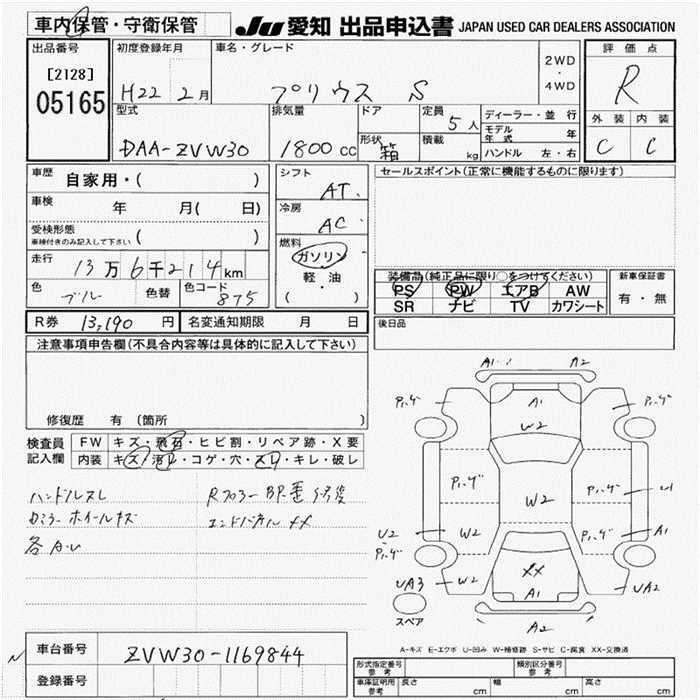 車内保管・守衛保管
JU 愛知 出品申込書 JAPAN USED CAR DEALERS ASSOCIATION
出品番号
[2128]
05165
初度登録年月
H22 2月
車名・グレード
プリウス S
2WD
・
4WD
評価点
R
外装 内装
C C
型式
DAA-ZVW30
排気量
1800 cc
ドア
形状
箱
定員
5人
積載
kg
ディーラー・並行
モデル年式 年
ハンドル 左・右
車歴
自家用・( )
車検
年 月( 日)
受検形態
車検付きのみ記入して下さい ( )
走行
13万6千214km
色
ブル
色替
色コード
875
シフト
AT
冷房
AC
燃料
ガソリン
軽・油
( )
セールスポイント(正常に機能するものに限ります)
装備品(純正品に限り○をつけてください)
PS PW エアB AW
SR ナビ TV カワシート
新車保証書
有・無
R券 13,190 円
名変通知期限 月 日
後日品
注意事項申告欄(不具合内容等は具体的に記入して下さい)
修復歴 有 (箇所 )
検査員記入欄
FW キズ・飛石・ヒビ割・リペア跡・X要
内装 キズ・汚レ・コゲ・穴・スレ・キレ・破レ
ハンドルスレ
ホイールキズ
エンドパネルXX
A1 A2
パンク パンク
A1
W2
パンク パンク
W2
U2 W2 パンク A1
パンク
XX
UA3 W2 A1 UA2
スペア
A2
A-キズ E-エクボ U-凹み W-補修跡 S-サビ C-腐食 XX-交換済
車台番号
ZVW30-1169844
登録番号
形式指定番号
参考
類別区分番号
参考
車庫証明用
参考
長さ cm
幅 cm
高さ cm